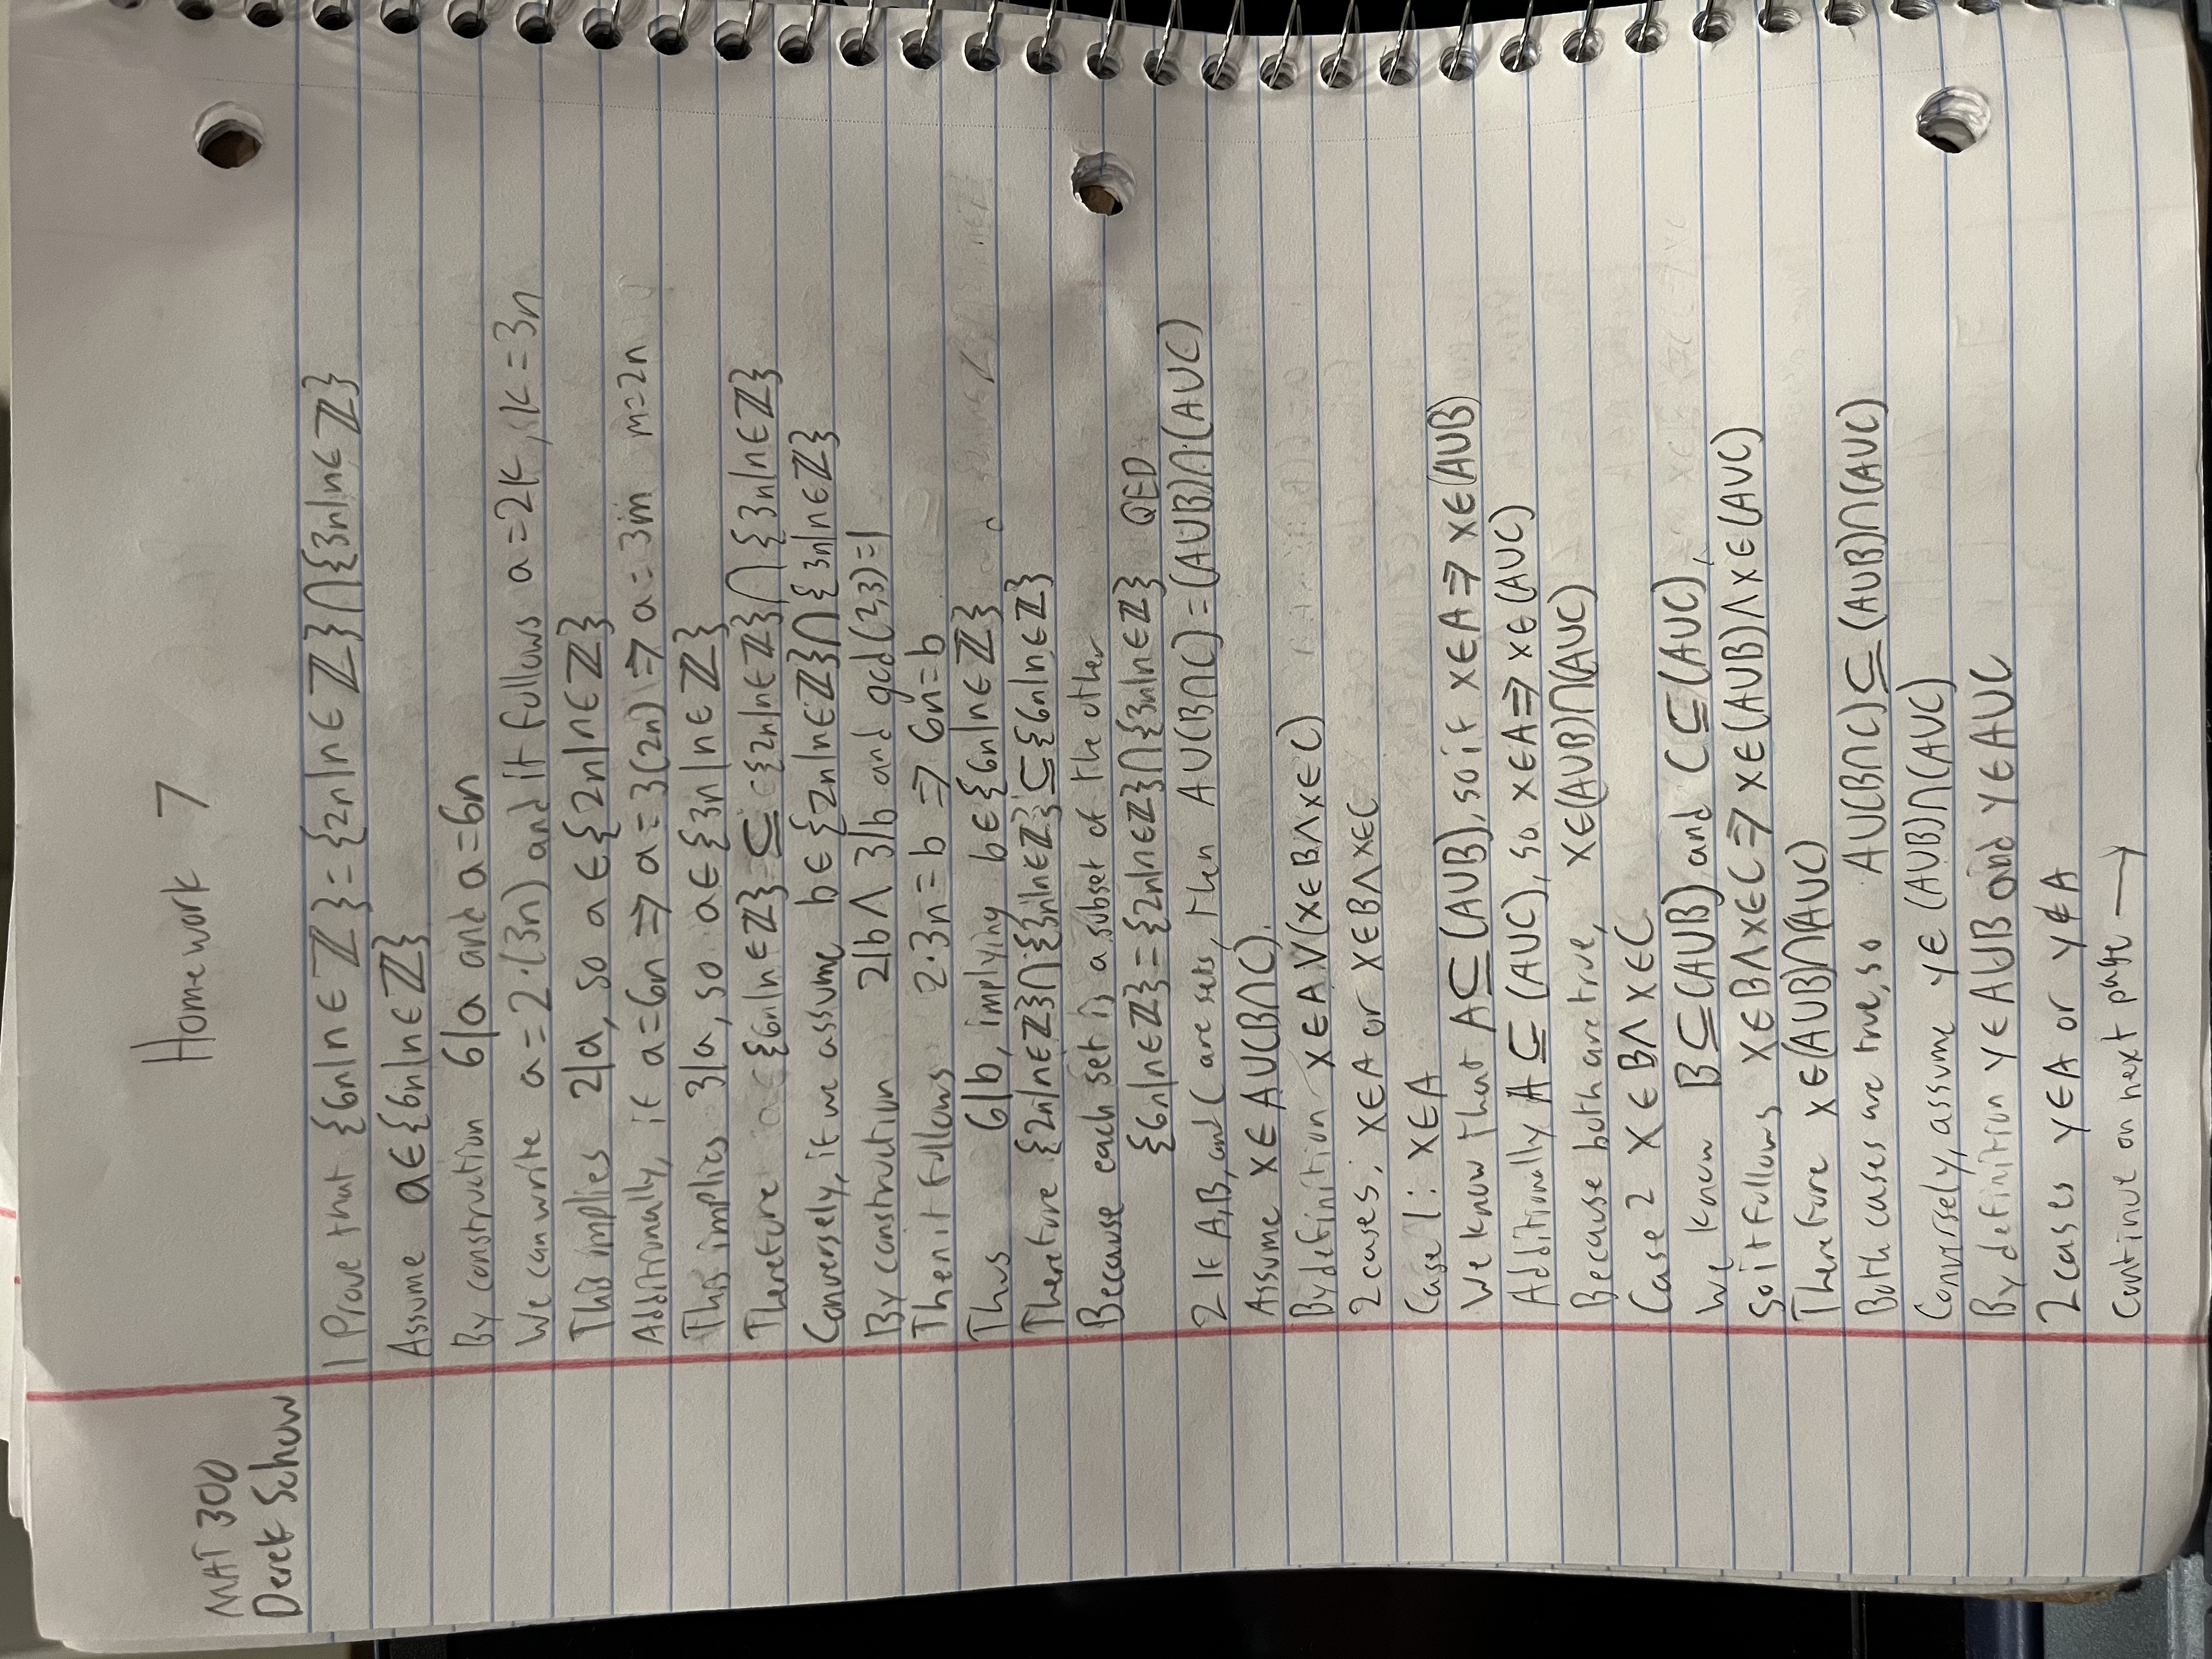 Homework 7
MAT 300
Derek Schow
1 Prove that {6n|n∈ℤ}={2n|n∈ℤ}∩{3n|n∈ℤ}
Assume a∈{6n|n∈ℤ}
By construction 6|a and a=6n
We can write a=2·(3n) and it follows a=2k, k=3n
This implies 2|a, so a∈{2n|n∈ℤ}
Additionally, if a=6n ⇒ a=3(2n) ⇒ a=3m m=2n
This implies 3|a, so a∈{3n|n∈ℤ}
Therefore {6n|n∈ℤ} ⊆ {2n|n∈ℤ}∩{3n|n∈ℤ}
Conversely, if we assume b∈{2n|n∈ℤ}∩{3n|n∈ℤ}
By construction 2|b ∧ 3|b and gcd(2,3)=1
Then it follows 2·3n=b ⇒ 6n=b
Thus 6|b, implying b∈{6n|n∈ℤ}
Therefore {2n|n∈ℤ}∩{3n|n∈ℤ}⊆{6n|n∈ℤ}
Because each set is a subset of the other
{6n|n∈ℤ}={2n|n∈ℤ}∩{3n|n∈ℤ} QED
2 If A,B, and C are sets, then A∪(B∩C)=(A∪B)∩(A∪C)
Assume x∈A∪(B∩C).
By definition x∈A∨(x∈B∧x∈C)
2 cases: x∈A or x∈B∧x∈C
Case 1: x∈A
We know that A⊆(A∪B), so if x∈A⇒x∈(A∪B)
Additionally A⊆(A∪C), so x∈A⇒x∈(A∪C)
Because both are true, x∈(A∪B)∩(A∪C)
Case 2 x∈B∧x∈C
We know B⊆(A∪B) and C⊆(A∪C),
so it follows x∈B∧x∈C⇒x∈(A∪B)∧x∈(A∪C)
Therefore x∈(A∪B)∩(A∪C)
Both cases are true, so A∪(B∩C)⊆(A∪B)∩(A∪C)
Conversely, assume y∈(A∪B)∩(A∪C)
By definition y∈A∪B and y∈A∪C
2 cases y∈A or y∉A
Continue on next page →